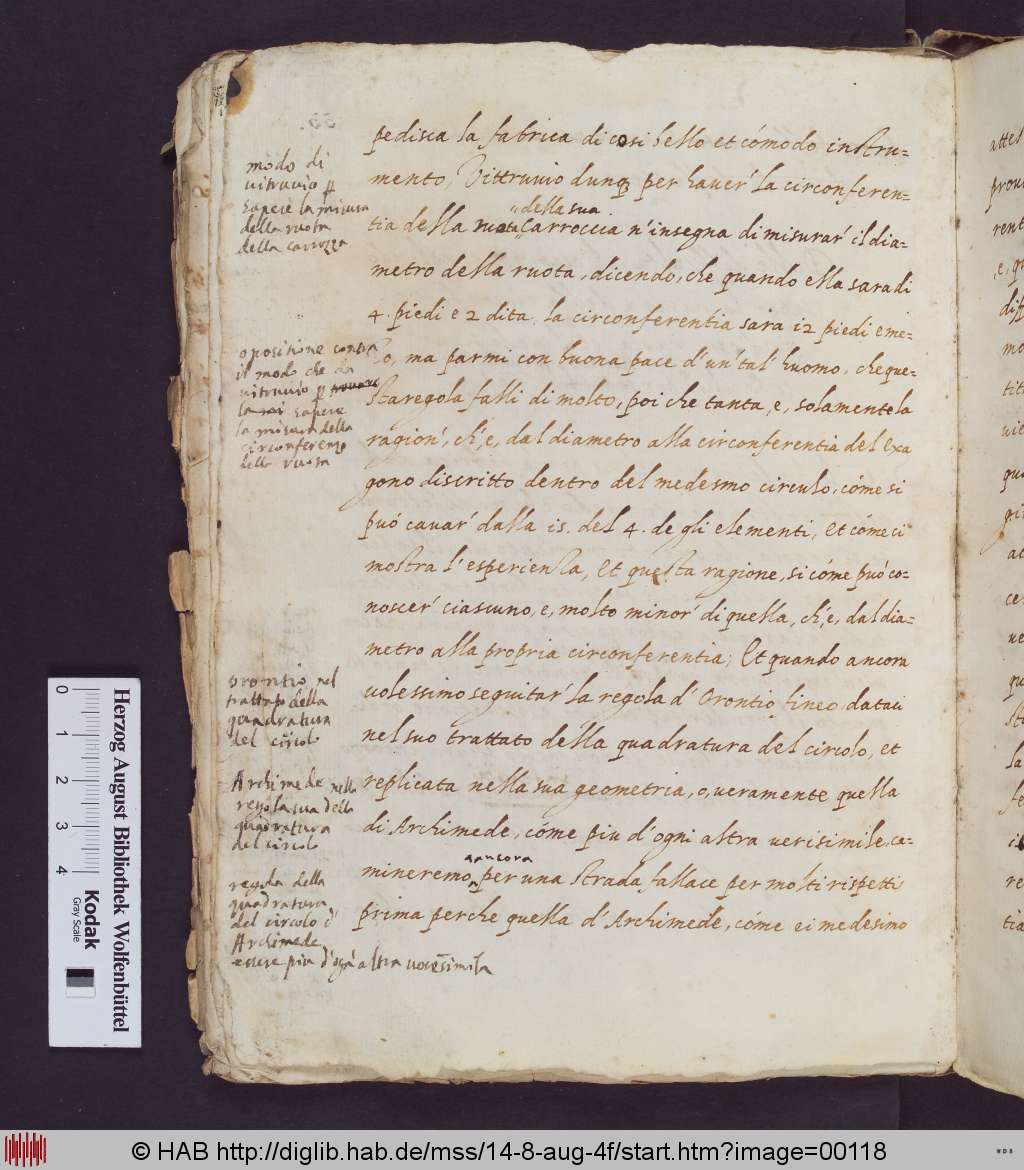 pedisca la fabrica di cosi bello et cómodo instru-
mento, Vittruvio dunq; per haver' la circonferen-
della sua
tia della ruota Carroccia n'insegna di misurar' il dia-
metro della ruota, dicendo, che quando ella sara di
4. piedi e 2 dita, la circonferentia sara i2 piedi e me-
zo, ma parmi con buona pace d'un' tal' huomo, che que-
sta regola falli di molto, poi che tanta, e, solamente la
ragion', ch', e, dal diametro alla circonferentia del Exa
gono discritto dentro del medesmo circulo, cóme si
puó cavar' dalla is. del 4. de gli elementi, et cóme ci
mostra l'esperienza, et questa ragione, si cóme puó co-
noscer' ciascuno, e, molto minor' di quella, ch', e, dal dia-
metro alla propria circonferentia; Et quando ancora
volessimo seguitar' la regola d' Orontio fineo data ci
nel suo trattato della quadratura del circolo, et
replicata nella sua geometria, o, veramente quella
di Archimede, cóme piu d'ogni altra verisimile, ca-
ancora
mineremo per una strada fallace per molti rispetti
prima perche quella d' Archimede, cóme ei medesimo
modo di
vitruvio p
sapere la misura
della ruota
della carrozza
opositione contra
il modo che da
vitruvio p provare
sapere
la misura della
circonferenza
della ruota
orontio nel
trattato della
quadratura
del circolo
Archimede nella
regola sua della
quadratura
del circolo
regola della
quadratura
del circolo d'
Archimede
essere piu d'ogni altra verisimila
Herzog August Bibliothek Wolfenbüttel
0 1 2 3 4
Kodak
Gray Scale
© HAB http://diglib.hab.de/mss/14-8-aug-4f/start.htm?image=00118